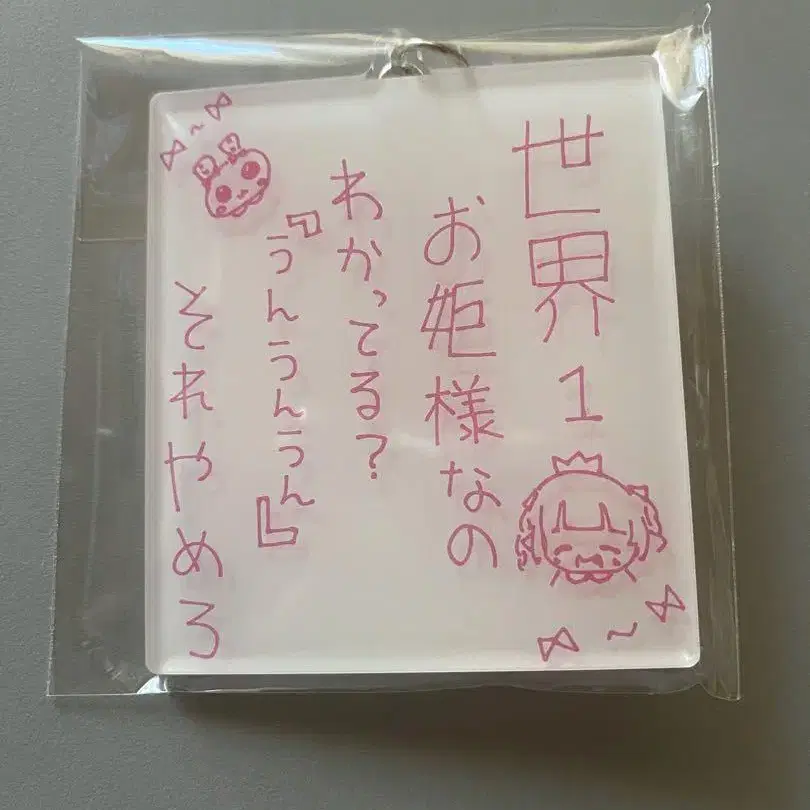 世界1
お姫様なの
わかってる?
『うんうんうん』
それやめろ